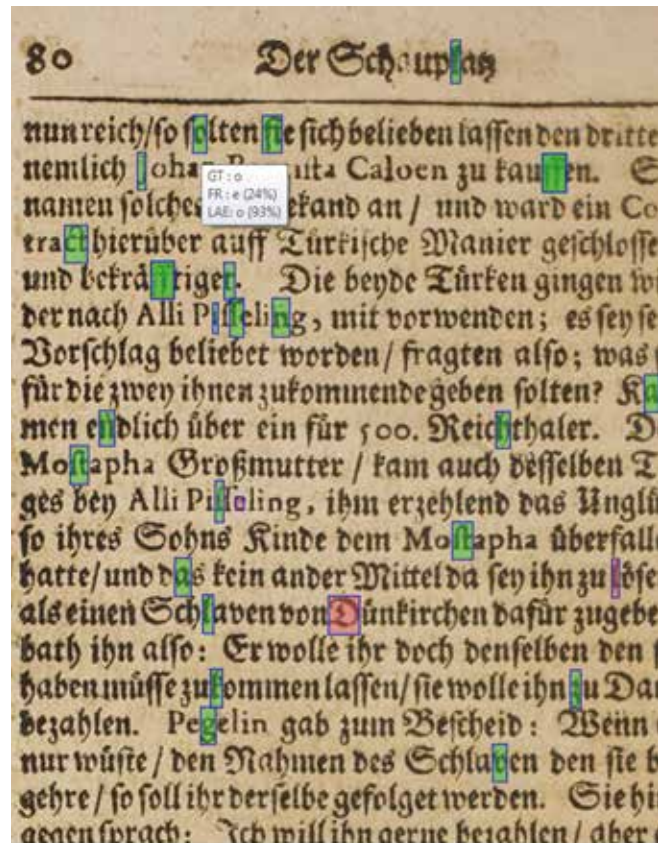 80 Der Schauplatz
nun reich/so solten sie sich belieben lassen den dritte
nemlich zu kauffen. S
GT : o
FR : e (24%)
LAE: o (93%)
namen solches an / und ward ein Co
tract hierüber auff Türkische Manier geschlosse
und bekräfftiget. Die beyde Türken gingen wi
der nach Alli Pisseling, mit vorwenden; es sey se
Vorschlag beliebet worden/ fragten also; was
für die zwey ihnen zukommende geben solten? Ka
men endlich über ein für 500. Reichthaler. D
Mostapha Großmutter / kam auch desselben T
ges bey Alli Pisseling, ihm erzehlend das Unglü
so ihres Sohns Kinde dem Mostapha überfalle
hatte/und das kein ander Mittel da sey ihn zu löse
als einen Schlaven von Dünkirchen dafür zugebe
bath ihn also: Er wolle ihr doch denselben den
haben müsse zukommen lassen/ sie wolle ihn zu Dan
bezahlen. Pegelin gab zum Bescheid: Wenn
nur wüste / den Nahmen des Schlaven den sie b
gehre / so soll ihr derselbe gefolget werden. Sie hi
gegen sprach: Ich will ihn gerne bezahlen / aber